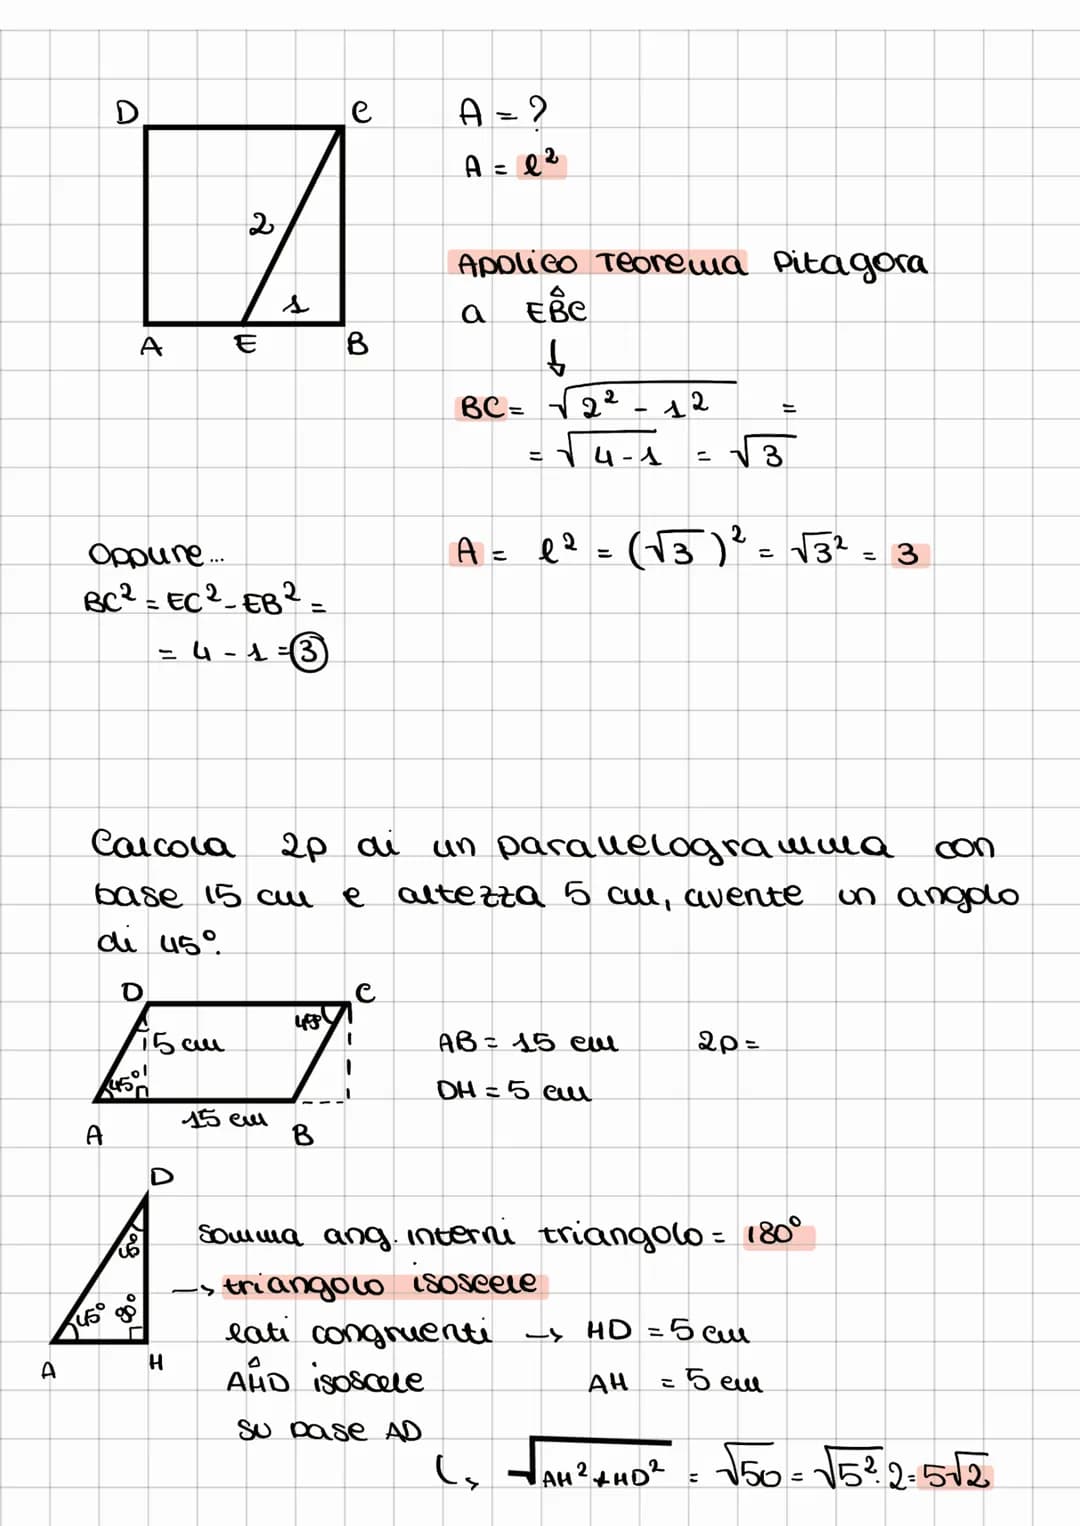 D C A = ?
A = l²
2
Applico Teorema Pitagora
1
a EB̂C
A E B
↓
BC = √2² - 1² =
= √4-1 = √3
Oppure... A = l² = (√3)² = √3² = 3
BC² = EC² - EB² =
= 4 - 1 = 3
Calcola 2p di un parallelogramma con
base 15 cm e altezza 5 cm, avente un angolo
di 45°.
D C
45°
5 cm AB = 15 cm 2p =
45° DH = 5 cm
15 cm
A B
D
45° somma ang. interni triangolo = 180°
→ triangolo isoscele
45° 90° lati congruenti → HD = 5 cm
A H AĤD isoscele AH = 5 cm
su base AD
↳ √AH² + HD² = √50 = √5²·2 = 5√2